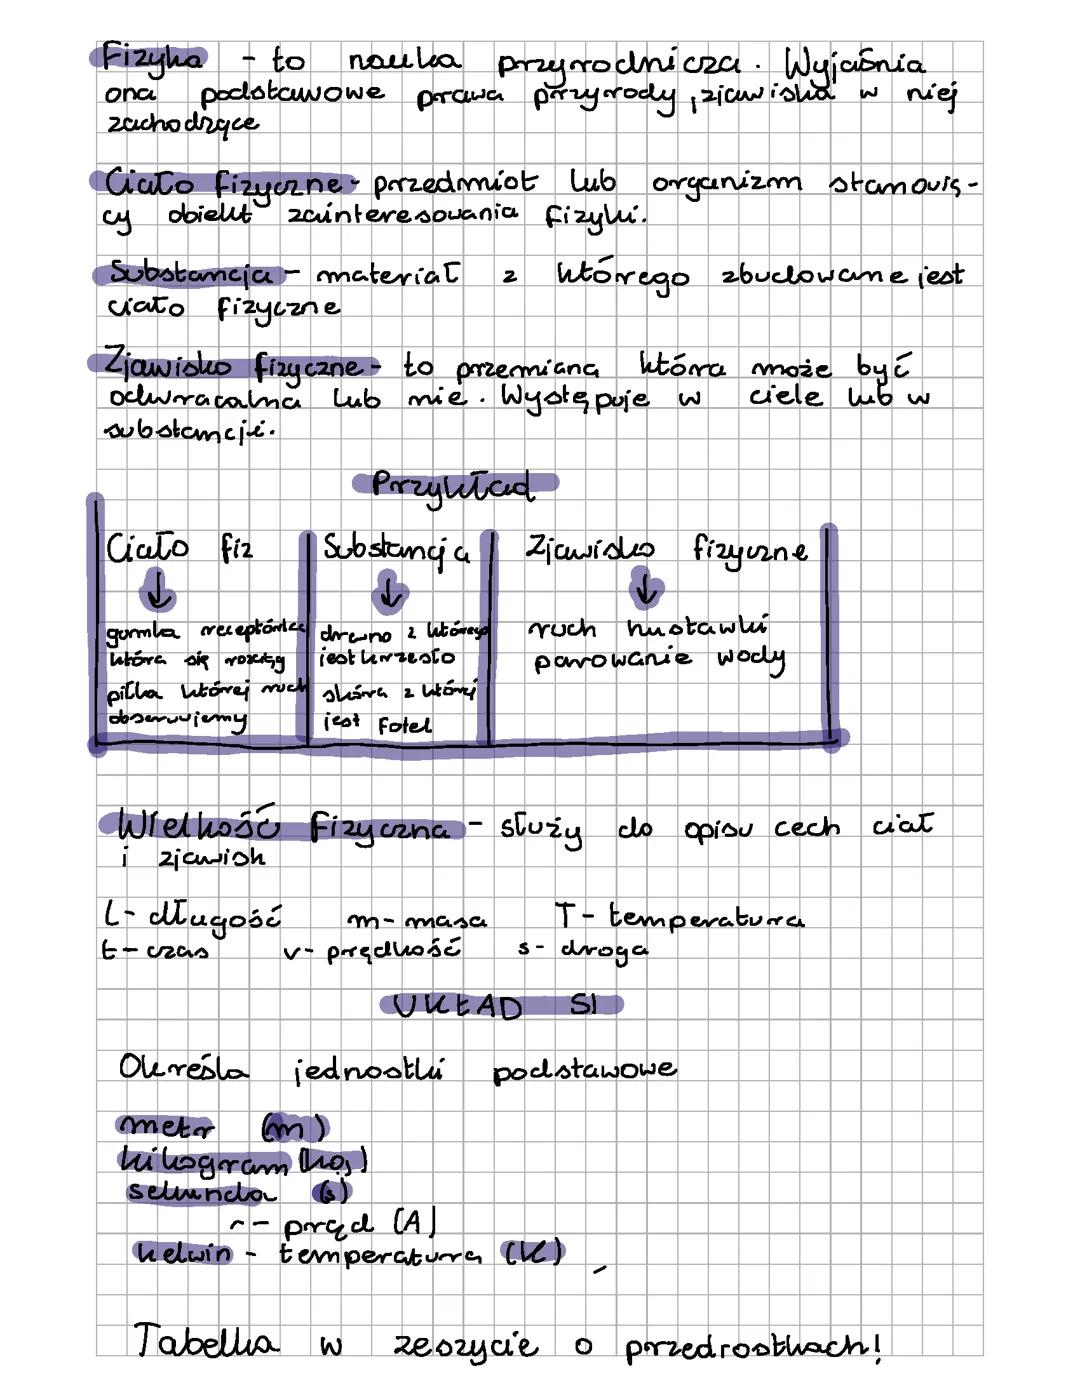 Fizyka - to nauka przyrodnicza. Wyjaśnia
ona podstawowe prawa przyrody, zjawiska w niej
zachodzące
Ciało fizyczne - przedmiot lub organizm stanowią-
cy obiekt zainteresowania fizyki.
Substancja - materiał z którego zbudowane jest
ciało fizyczne
Zjawisko fizyczne - to przemiana która może być
odwracalna lub nie. Występuje w ciele lub w
substancji.
Przykład
Ciało fiz
gumka recepturka
która się rozciąg
piłka której ruch
obserwujemy
Substancja
drewno z którego
jest krzesło
skóra z której
jest fotel
Zjawisko fizyczne
ruch huśtawki
parowanie wody
Wielkość fizyczna - służy do opisu cech ciał
i zjawisk
L - długość m - masa T - temperatura
t - czas v - prędkość s - droga
UKŁAD SI
Określa jednostki podstawowe
metr (m)
kilogram (kg)
sekunda (s)
-- prąd (A)
kelwin - temperatura (K)
Tabelka w zeszycie o przedrostkach!